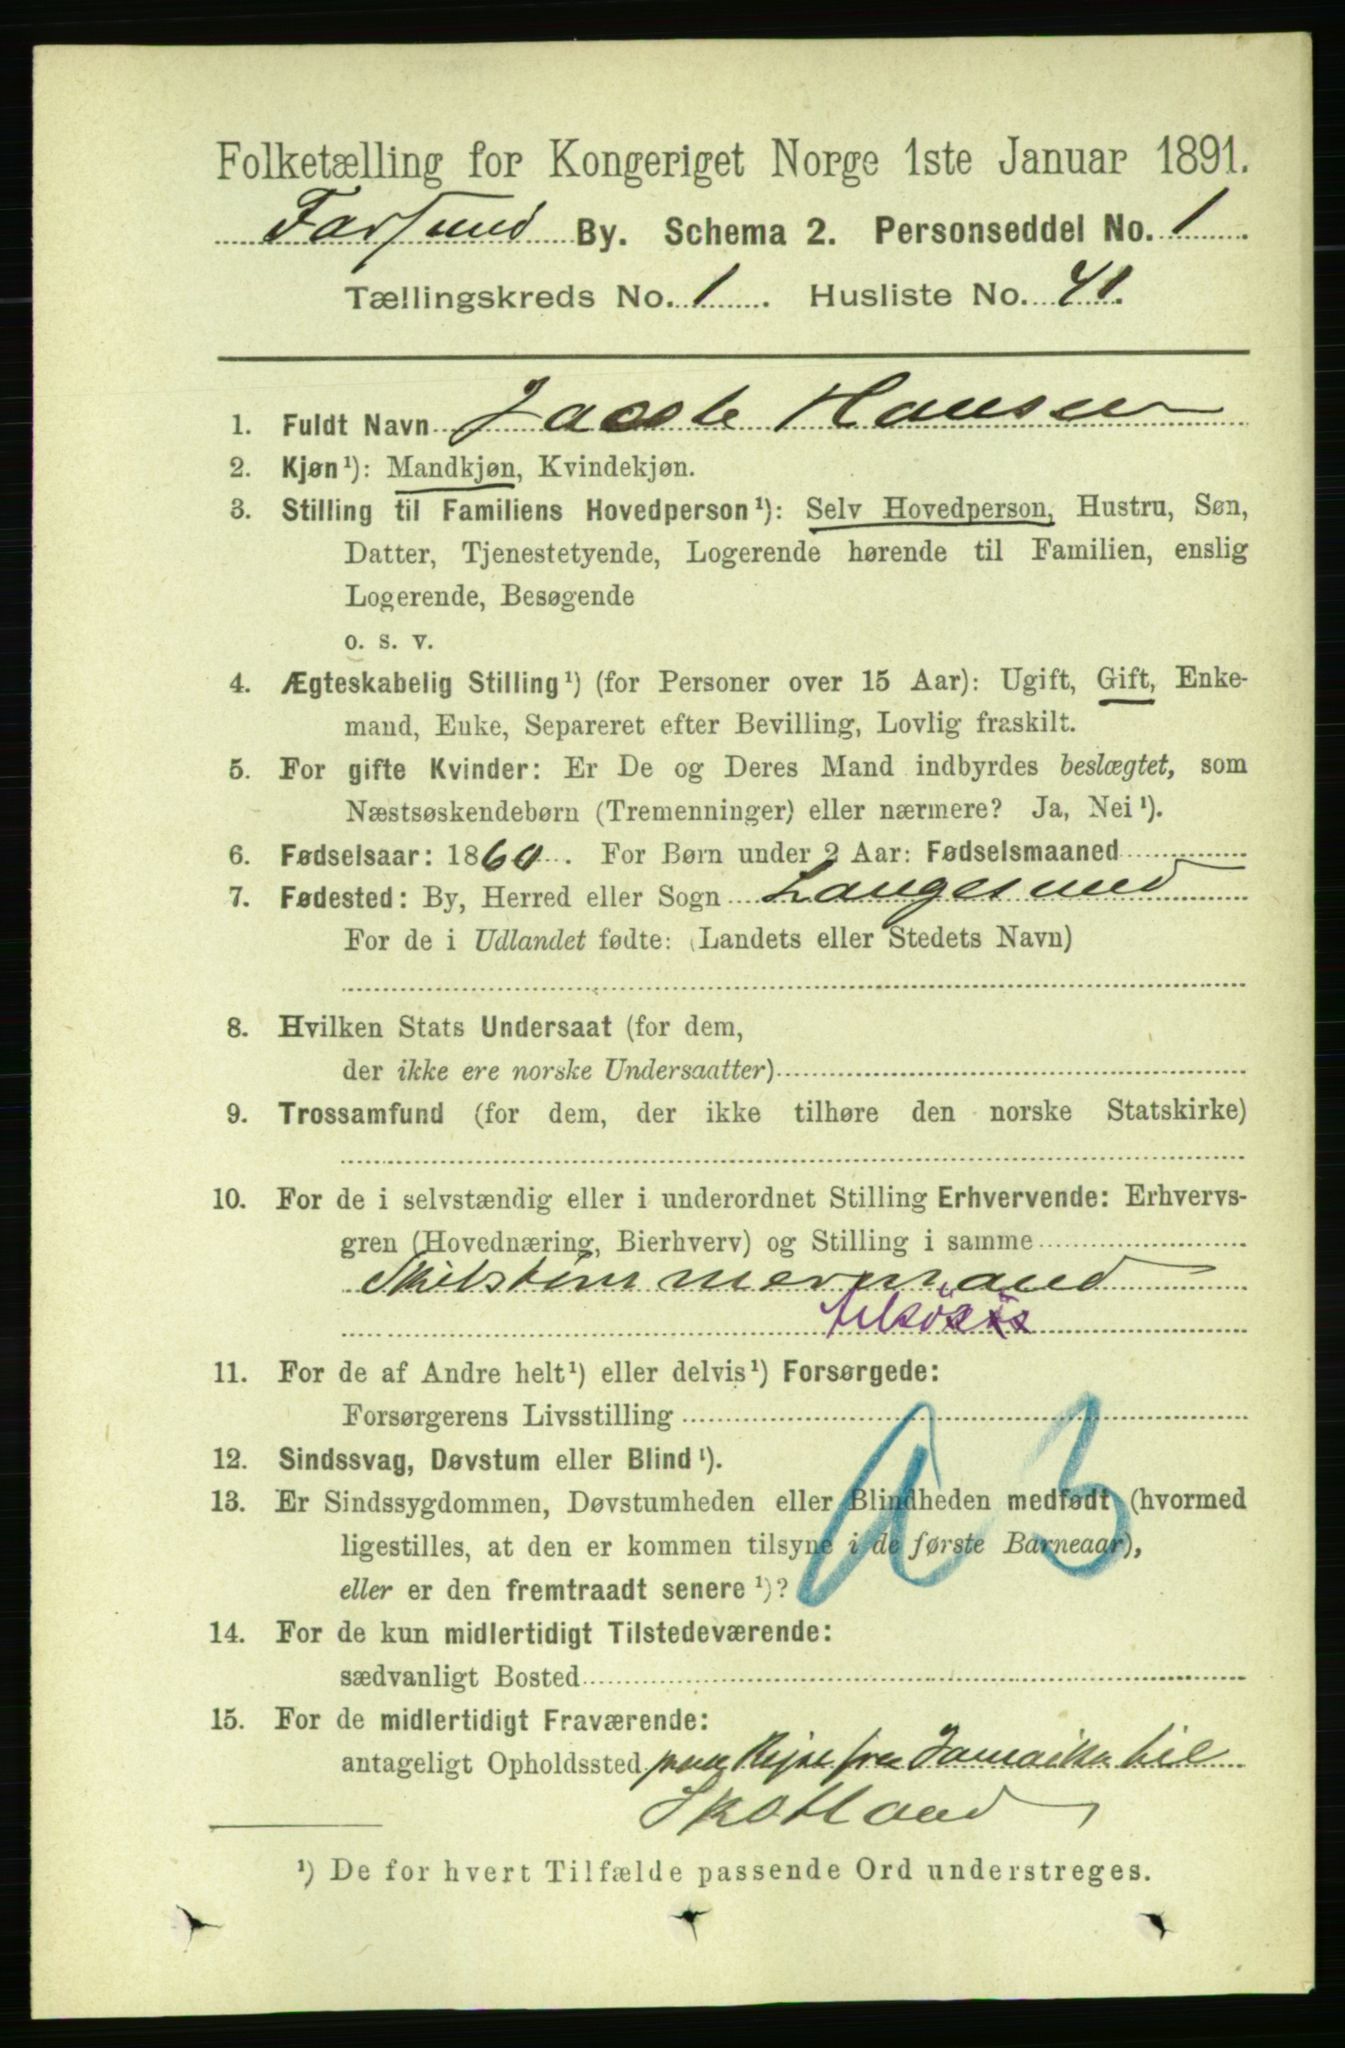 Folketælling for Kongeriget Norge 1ste Januar 1891.
Farsund By. Schema 2. Personseddel No. 1
Tællingskreds No. 1. Husliste No. 41.
1. Fuldt Navn Jacob Hansen
2. Kjøn¹): Mandkjøn, Kvindekjøn.
3. Stilling til Familiens Hovedperson¹): Selv Hovedperson, Hustru, Søn,
Datter, Tjenestetyende, Logerende hørende til Familien, enslig
Logerende, Besøgende
o. s. v.
4. Ægteskabelig Stilling¹) (for Personer over 15 Aar): Ugift, Gift, Enke-
mand, Enke, Separeret efter Bevilling, Lovlig fraskilt.
5. For gifte Kvinder: Er De og Deres Mand indbyrdes beslægtet, som
Næstsøskendebørn (Tremenninger) eller nærmere? Ja, Nei¹).
6. Fødselsaar: 1860. For Børn under 2 Aar: Fødselsmaaned
7. Fødested: By, Herred eller Sogn Langesund
For de i Udlandet fødte: (Landets eller Stedets Navn)
8. Hvilken Stats Undersaat (for dem,
der ikke ere norske Undersaatter)
9. Trossamfund (for dem, der ikke tilhøre den norske Statskirke)
10. For de i selvstændig eller i underordnet Stilling Erhvervende: Erhvervs-
gren (Hovednæring, Bierhverv) og Stilling i samme
Skibstømmermand
11. For de af Andre helt¹) eller delvis¹) Forsørgede:
Forsørgerens Livsstilling
12. Sindssvag, Døvstum eller Blind¹).
13. Er Sindssygdommen, Døvstumheden eller Blindheden medfødt (hvormed
ligestilles, at den er kommen tilsyne i de første Barneaar),
eller er den fremtraadt senere¹)?
14. For de kun midlertidigt Tilstedeværende:
sædvanligt Bosted
15. For de midlertidigt Fraværende:
antageligt Opholdssted paa Rejse fra Jamaika til
Skotland
¹) De for hvert Tilfælde passende Ord understreges.